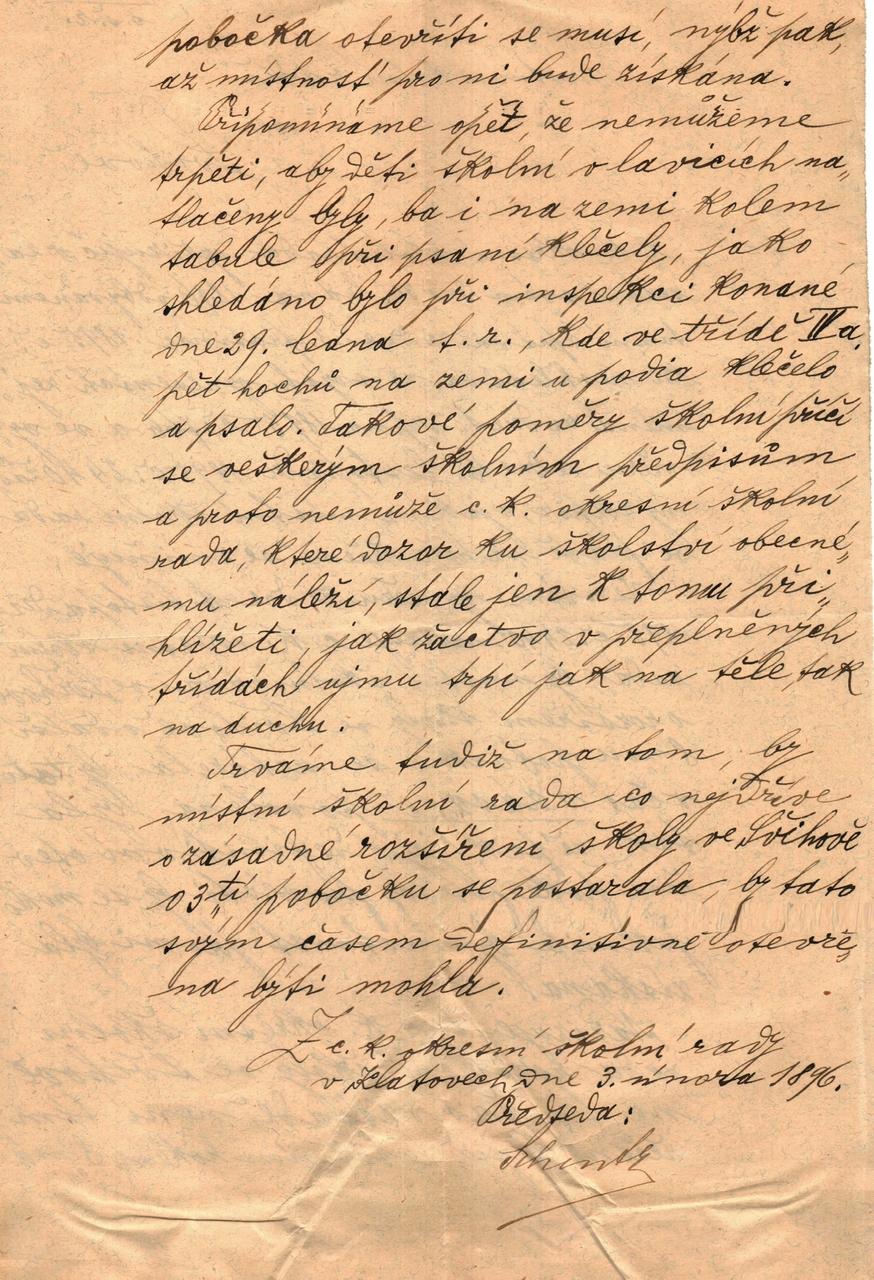 pobočka otevříti se musí, nýbž pak,
až místnosť pro ni bude získána.
Připomínáme opět, že nemůžeme
trpěti, aby děti školní v lavicích na„
tlačeny byly, ba i na zemi kolem
tabule při psaní klečely, jako
shledáno bylo při inspekci konané
dne 29. ledna t. r., kde ve třídě IV a.
pět hochů na zemi u podia klečelo
a psalo. Takové poměry školní příčí
se veškerým školním předpisům
a proto nemůže c. k. okresní školní
rada, které dozor ku školství obecné„
mu náleží, stále jen k tomu při„
hlížeti, jak žactvo v přeplněných
třídách ujmu trpí jak na těle, tak
na duchu.
Trváme tudiž na tom, by
místní školní rada co nejdříve
o zásadné rozšíření školy ve Švihově
o 3„tí pobočku se postarala, by tato
svým časem definitivně otevře„
na býti mohla.
Z c. k. okresní školní rady
v Klatovech, dne 3. února 1896.
Předseda: